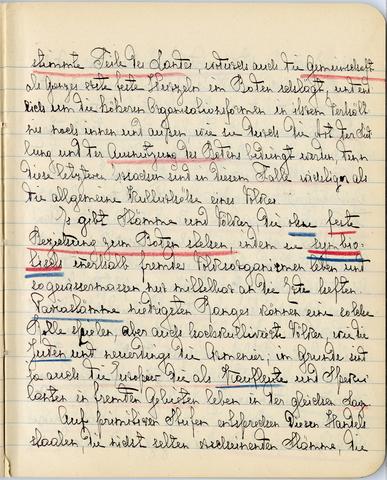 stimmte Teile des Landes, wodurch auch die Gemeinschaft
als Ganzes erste feste Wurzeln im Boden schlägt, und end
lich um die höheren Organisationsformen in ihrem Verhält
nis nach innen und außen wie sie durch die Art der
und der Ausnützung des Bodens bedingt werden, denn
diese letzteren Ursachen sind in diesem Falle wichtiger als
die allgemeine Kulturhöhe eines Volkes.
Es gibt Stämme und Völker, die ohne feste
Beziehung zum Boden stehen, indem sie symbio-
tisch innerhalb fremder Volksorganismen leben und
sogewissermaßen nur mittelbar an der Erde haften.
Pariastämme niedrigsten Ranges können eine solche
Rolle spielen, aber auch hochkultivierte Völker, wie die
Juden und neuerdings die Armenier; im Grunde sind
ja auch die Europäer die als Kaufleute und
in fremden Gebieten leben in der gleichen Lage.
Auf primitiven Stufen entsprechen diesen Handels
die nicht selten Stämme, die